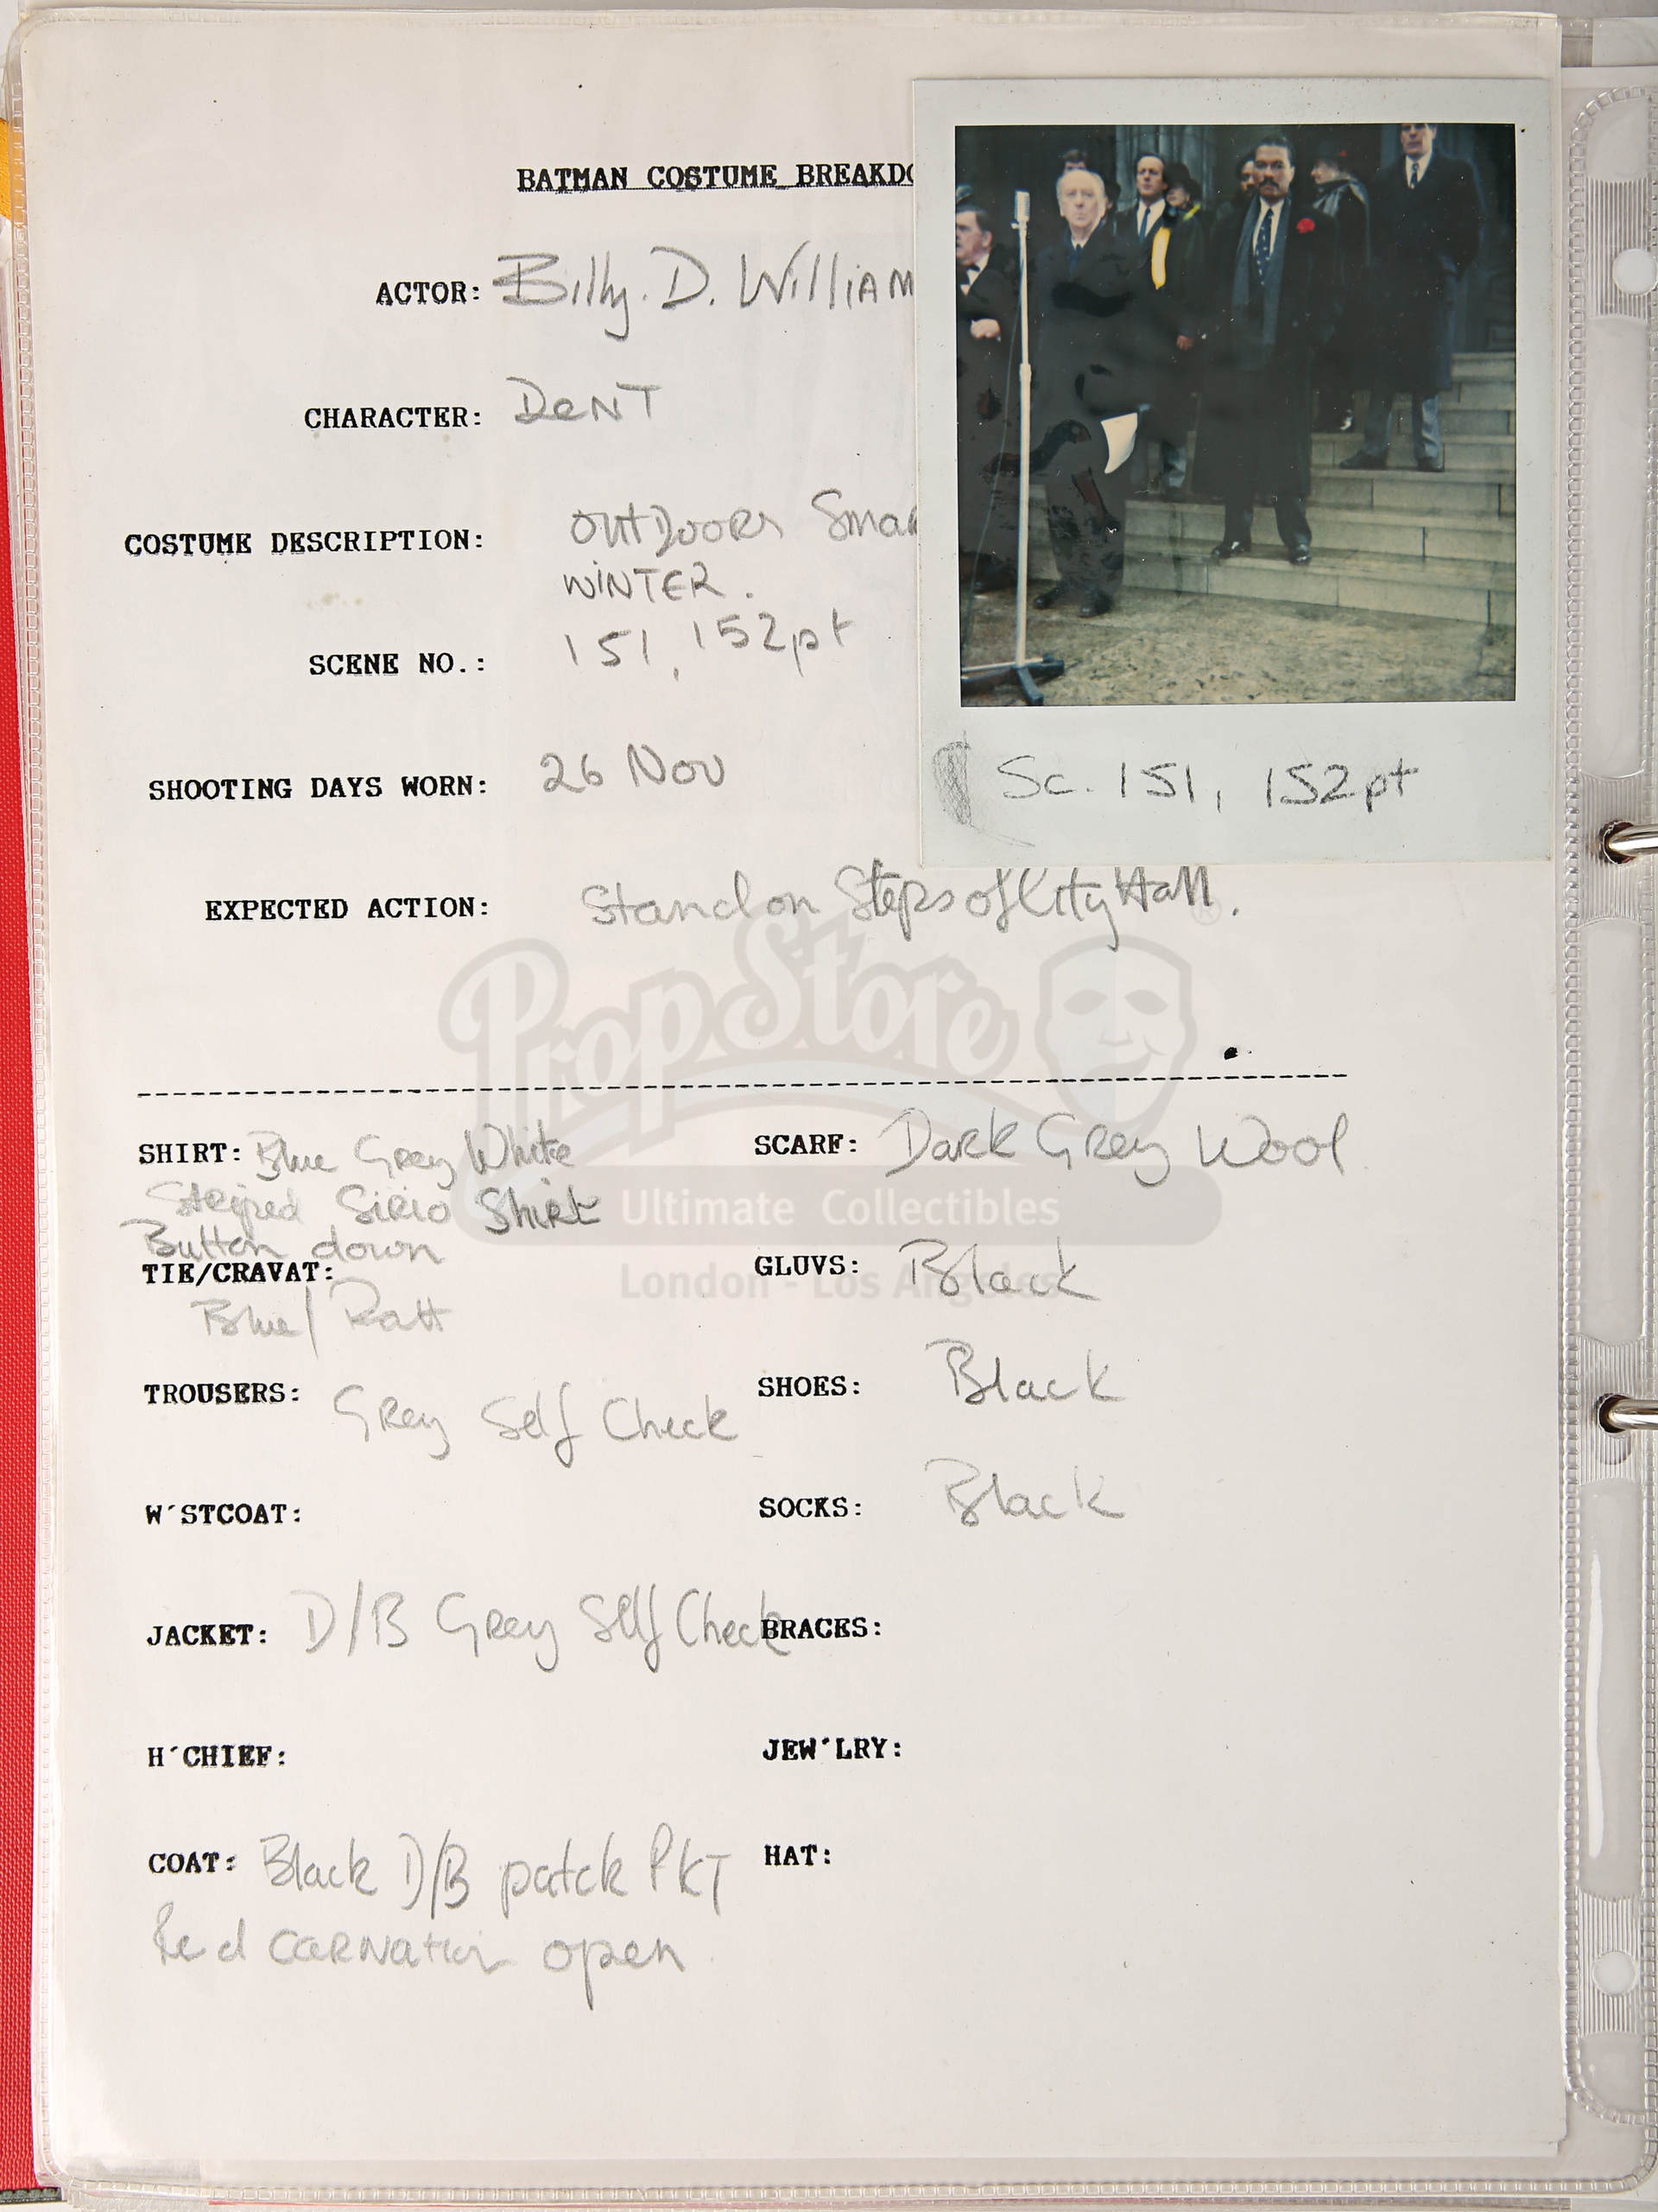 BATMAN COSTUME BREAKDO
ACTOR: Billy. D. William
CHARACTER: DeNT
COSTUME DESCRIPTION: OutDoors Smar
WiNTER.
SCENE NO.: 151, 152pt
SHOOTING DAYS WORN: 26 Nov
Sc. 151, 152pt
EXPECTED ACTION: Stand on Steps of City Hall.
PropStore ®
SHIRT: Blue Grey White
Striped Sirio Shirt
Button down
SCARF: Dark Grey Wool
Ultimate Collectibles
TIE/CRAVAT:
Blue/
GLUVS: Black
London - Los Angeles
TROUSERS: Grey Self Check
SHOES: Black
W´STCOAT:
SOCKS: Black
JACKET: D/B Grey Self Check
BRACES:
H´CHIEF:
JEW´LRY:
COAT: Black D/B patch PKT
Red carnation open
HAT: